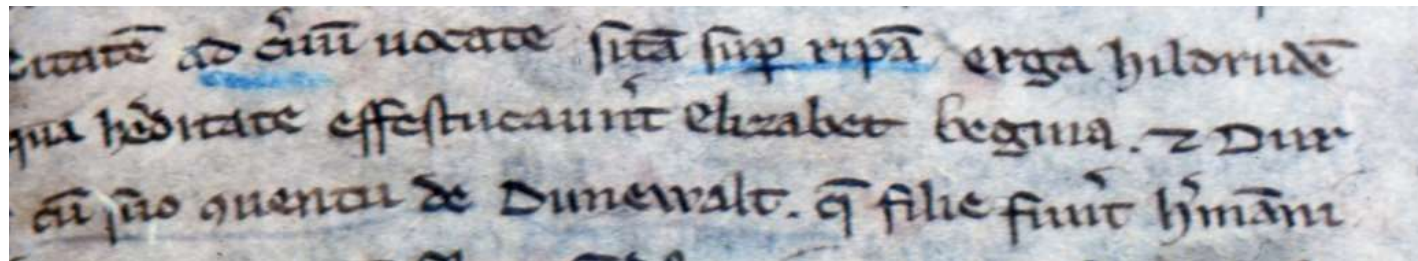 citatē ad c̄uū uocate sitā sup̱ ripā erga hildrudē
qua hēditate effestucauūt Elizabet begina. ⁊ Dur
cū suo ꝯuentu de Dunewalt. q̄ filie fūūt h̓māni